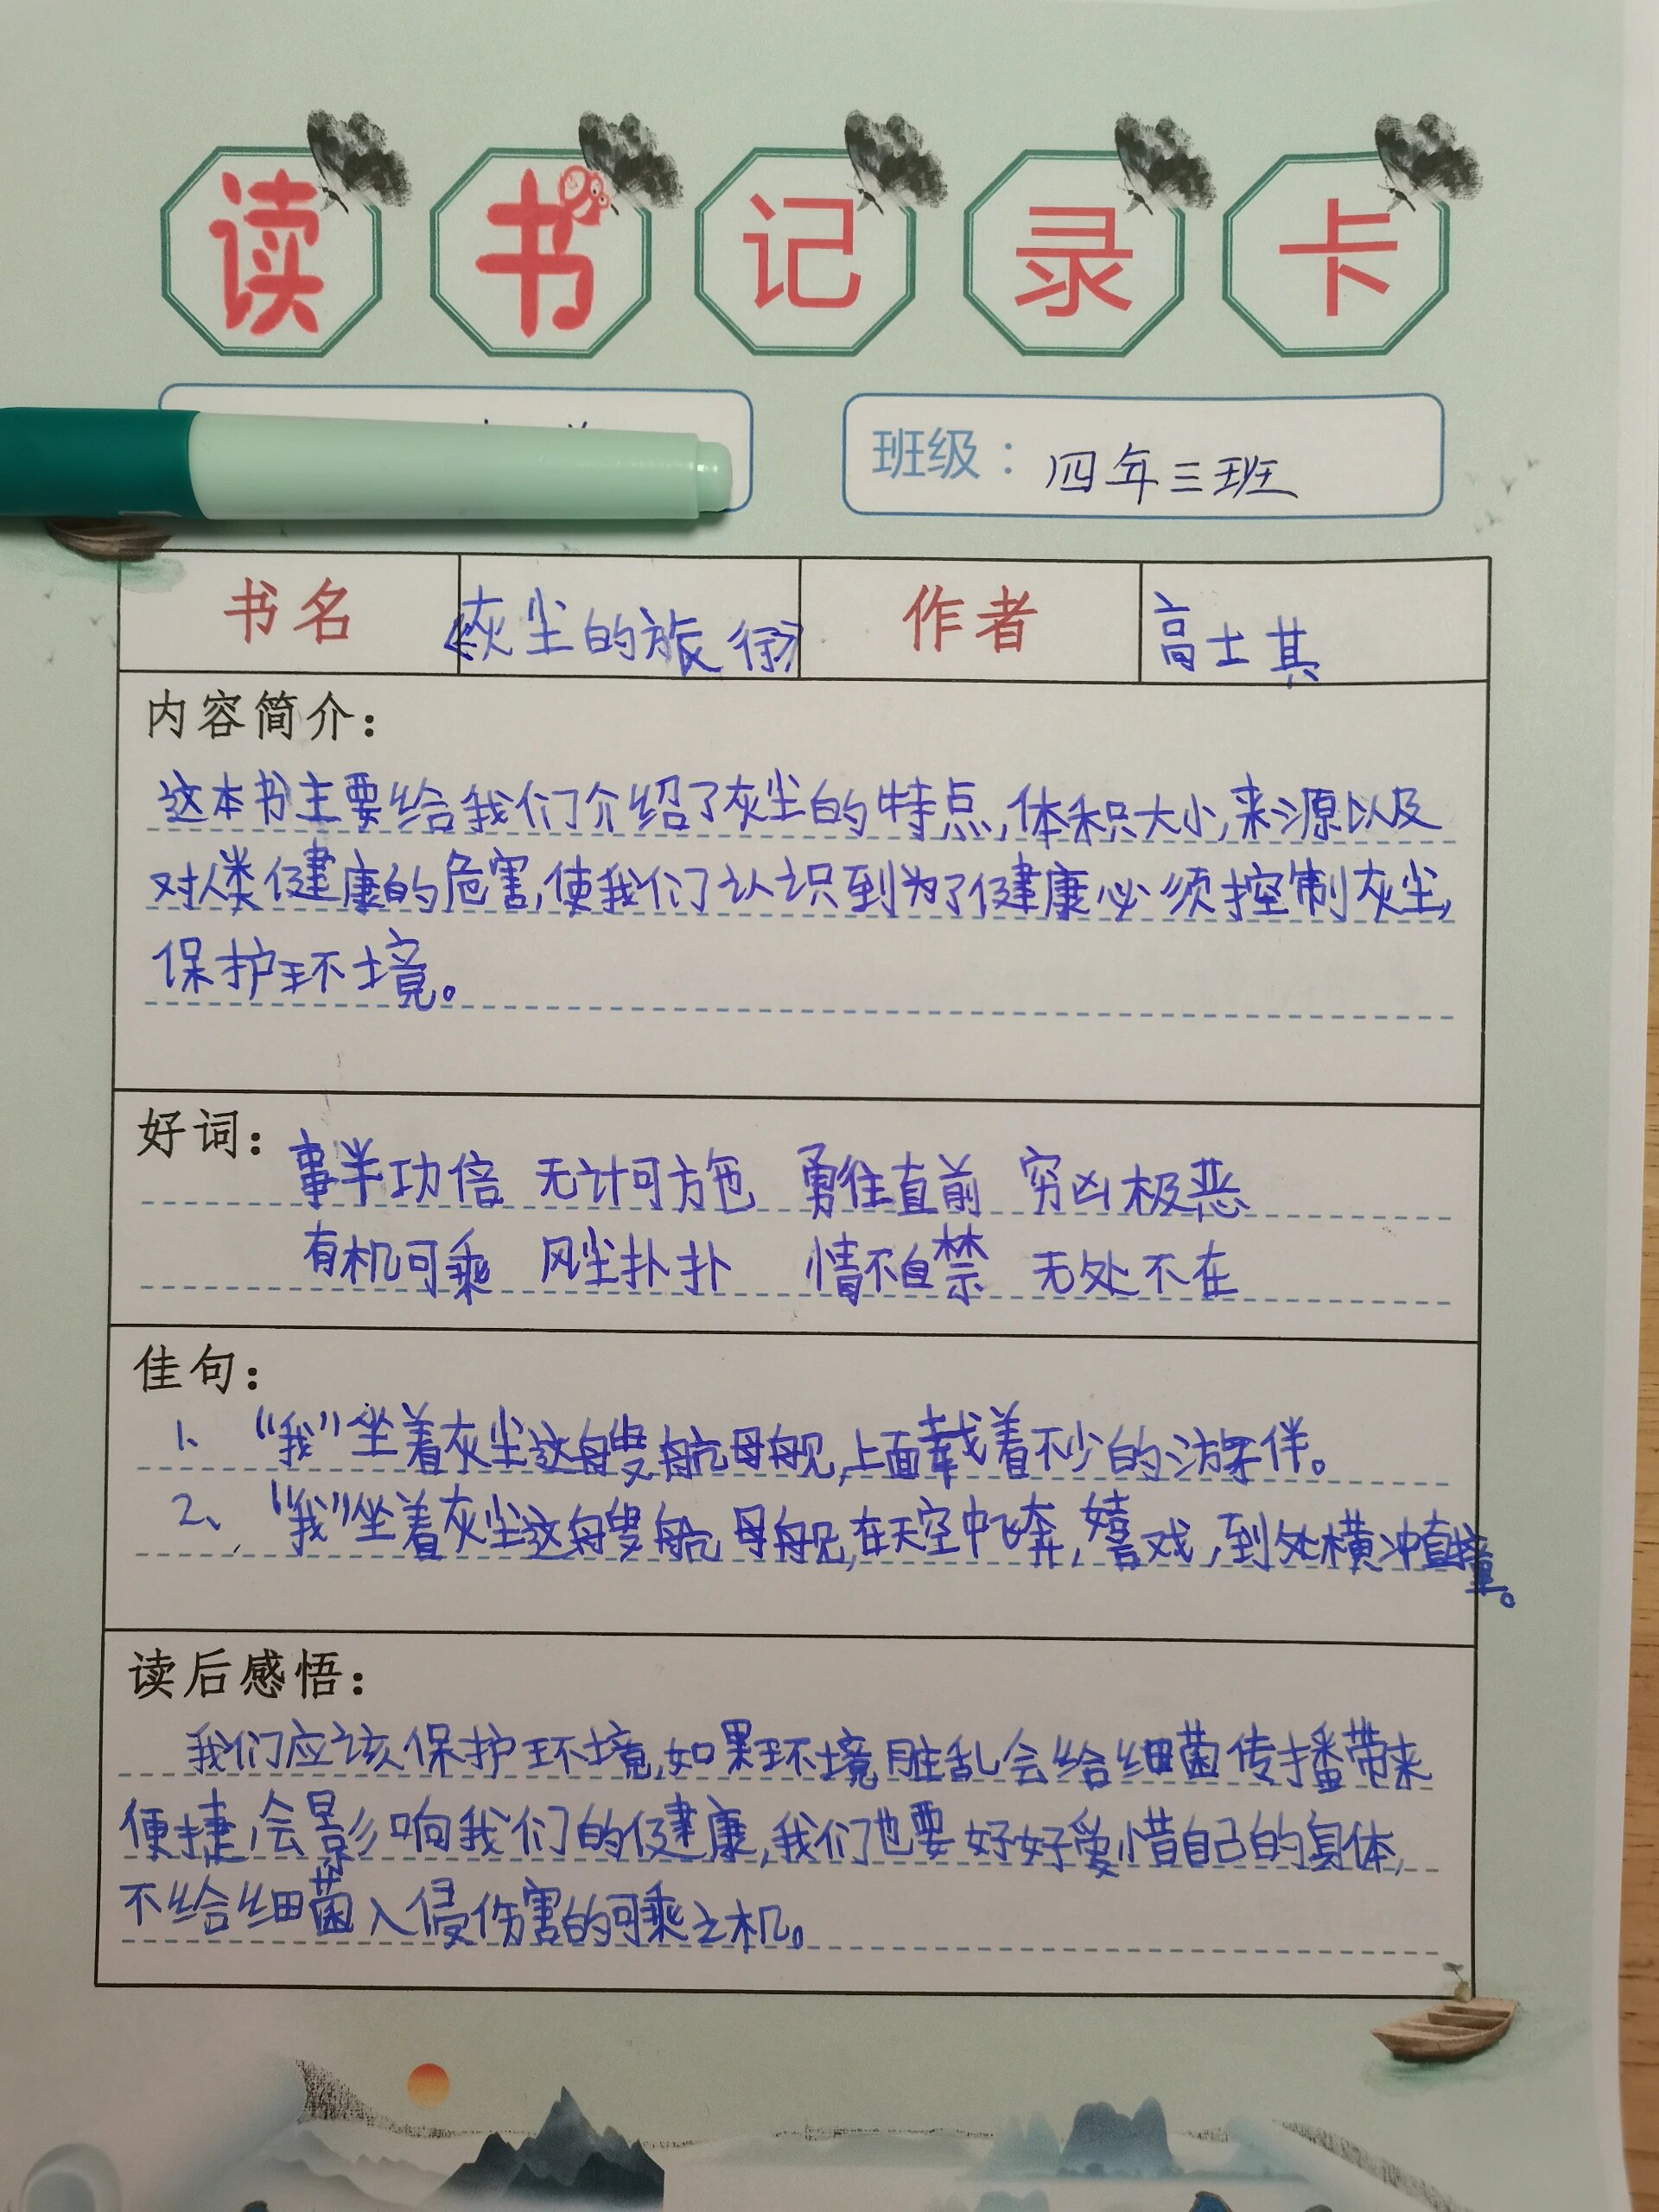 读书记录卡
班级：四年三班
书名 《灰尘的旅行》 作者 高士其
内容简介：
这本书主要给我们介绍了灰尘的特点,体积大小,来源以及
对人类健康的危害,使我们了认识到为了健康必须控制灰尘,
保护环境。
好词：
事半功倍 无计可施 勇往直前 穷凶极恶
有机可乘 风尘扑扑 情不自禁 无处不在
佳句：
1、“我”坐着灰尘这艘航母舰,上面载着不少的游伴。
2、“我”坐着灰尘这艘航母舰,在天空中飞奔,嬉戏,到处横冲直撞。
读后感悟：
我们应该保护环境,如果环境脏乱会给细菌传播带来
便捷,会影响我们的健康,我们也要好好爱惜自己的身体,
不给细菌入侵伤害的可乘之机。